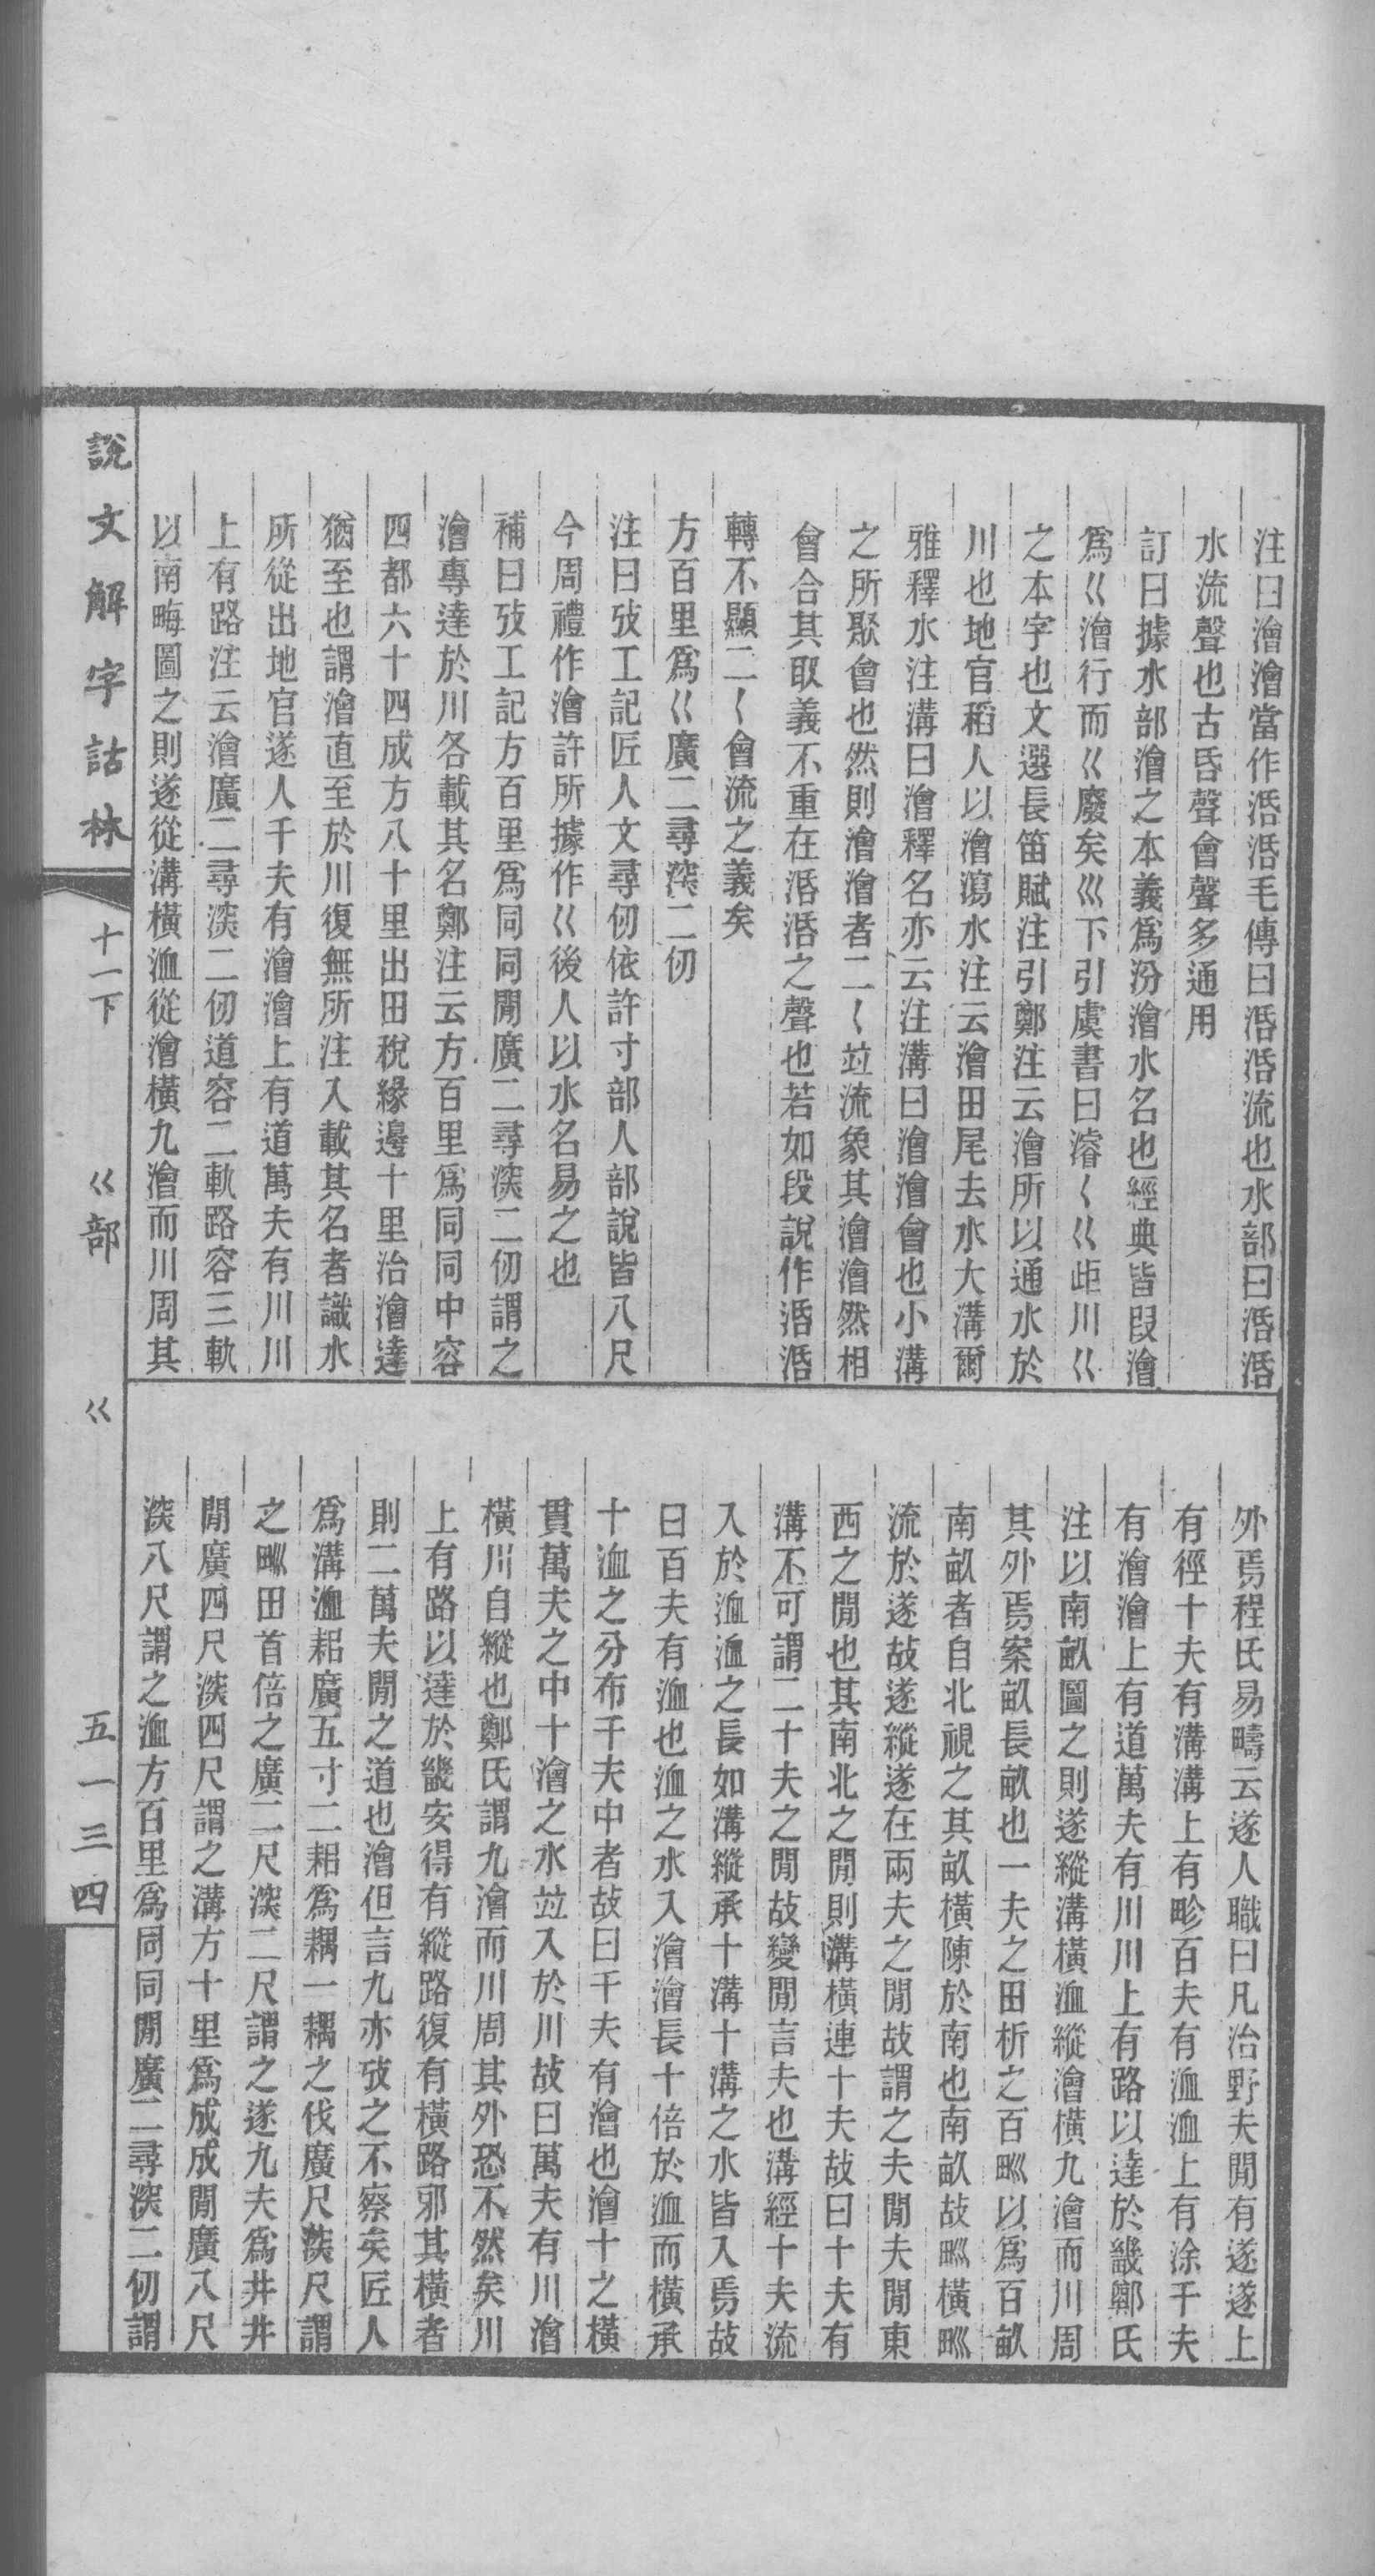 注曰澮澮當作㴽㴽毛傳曰㴽㴽流也水部曰㴽㴽
水流聲也古昏聲會聲多通用
訂曰據水部澮之本義爲汾澮水名也經典皆叚澮
爲巜澮行而巜廢矣巛下引虞書曰濬𡿨巜歫川巜
之本字也文選長笛賦注引鄭注云澮所以通水於
川也地官稻人以澮瀉水注云澮田尾去水大溝爾
雅釋水注溝曰澮釋名亦云注溝曰澮澮會也小溝
之所聚會也然則澮澮者二𡿨竝流象其澮澮然相
會合其取義不重在㴽㴽之聲也若如段說作㴽㴽
轉不顯二𡿨會流之義矣
方百里爲巜廣二尋深二仞
注曰攷工記匠人文尋仞依許寸部人部說皆八尺
今周禮作澮許所據作巜後人以水名易之也
補曰攷工記方百里爲同同閒廣二尋深二仞謂之
澮專達於川各載其名鄭注云方百里爲同同中容
四都六十四成方八十里出田稅緣邊十里治澮達
猶至也謂澮直至於川復無所注入載其名者識水
所從出地官遂人千夫有澮澮上有道萬夫有川川
上有路注云澮廣二尋深二仞道容二軌路容三軌
以南畮圖之則遂從溝橫洫從澮橫九澮而川周其
外焉程氏易疇云遂人職曰凡治野夫閒有遂遂上
有徑十夫有溝溝上有畛百夫有洫洫上有涂千夫
有澮澮上有道萬夫有川川上有路以達於畿鄭氏
注以南畝圖之則遂縱溝橫洫縱澮橫九澮而川周
其外焉案畝長畝也一夫之田析之百甽以爲百畝
南畝者自北視之其畝橫陳於南也南畝故甽橫甽
流於遂故遂縱遂在兩夫之閒故謂之夫閒夫閒東
西之閒也其南北之閒則溝橫連十夫故曰十夫有
溝不可謂二十夫之閒故變閒言夫也溝經十夫流
入於洫洫之長如溝縱承十溝十溝之水皆入焉故
曰百夫有洫也洫之水入澮澮長十倍於洫而橫承
十洫之分布千夫中者故曰千夫有澮也澮十之橫
貫萬夫之中十澮之水竝入於川故曰萬夫有川澮
橫川自縱也鄭氏謂九澮而川周其外恐不然矣川
上有路以達於畿安得有縱路復有橫路邪其橫者
則二萬夫閒之道也澮但言九亦攷之不察矣匠人
爲溝洫耜廣五寸二耜爲耦一耦之伐廣尺深尺謂
之甽田首倍之廣二尺深二尺謂之遂九夫爲井井
閒廣四尺深四尺謂之溝方十里爲成成閒廣八尺
深八尺謂之洫方百里爲同同閒廣二尋深二仞謂
說文解字詁林
十一下
巜部
巜
五一三四